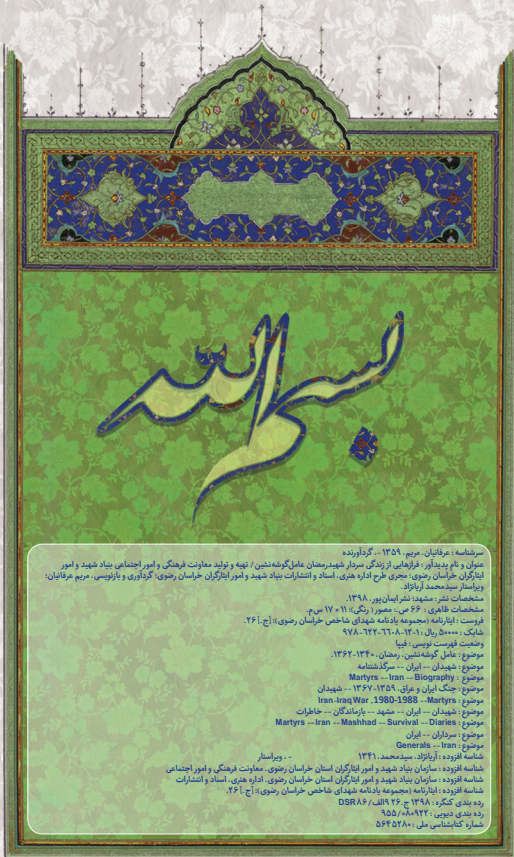 بسم الله
سرشناسه : عرفانیان، مریم، ۱۳۵۹ -، گردآورنده
عنوان و نام پدیدآور : فرازهایی از زندگی سردار شهیدرمضان عامل‌گوشه‌نشین/ تهیه و تولید معاونت فرهنگی و امور اجتماعی بنیاد شهید و امور
ایثارگران خراسان رضوی؛ مجری طرح اداره هنری، اسناد و انتشارات بنیاد شهید و امور ایثارگران خراسان رضوی؛ گردآوری و بازنویسی، مریم عرفانیان؛
ویراستار سیدمحمد آریانژاد.
مشخصات نشر : مشهد؛ نشر ایمان‌پور، ۱۳۹۸.
مشخصات ظاهری : ۶۶ ص.: مصور ( رنگی)؛ ۱۱ × ۱۷ س‌م.
فروست : ایثارنامه (مجموعه یادنامه شهدای شاخص خراسان رضوی)؛ [ج.] ۲۶.
شابک : ۵۰۰۰۰ ریال : ۱-۱۲-۶۶۰۸-۶۲۲-۹۷۸
وضعیت فهرست نویسی : فیپا
موضوع : عامل گوشه‌نشین، رمضان، ۱۳۴۰-۱۳۶۲.
موضوع : شهیدان -- ایران -- سرگذشتنامه
موضوع : Martyrs -- Iran -- Biography
موضوع : جنگ ایران و عراق، ۱۳۵۹-۱۳۶۷ -- شهیدان
موضوع : Iran -Iraq War , 1980-1988 --Martyrs
موضوع : شهیدان -- ایران -- مشهد -- بازماندگان -- خاطرات
موضوع : Martyrs --Iran -- Mashhad -- Survival -- Diaries
موضوع : سرداران -- ایران
موضوع : Generals -- Iran
شناسه افزوده : آریانژاد، سیدمحمد، ۱۳۴۱ - ، ویراستار
شناسه افزوده : سازمان بنیاد شهید و امور ایثارگران استان خراسان رضوی، معاونت فرهنگی و امور اجتماعی
شناسه افزوده : سازمان بنیاد شهید و امور ایثارگران استان خراسان رضوی، اداره هنری، اسناد و انتشارات
شناسه افزوده : ایثارنامه (مجموعه یادنامه شهدای شاخص خراسان رضوی)؛ [ج.] ۲۶.
رده بندی کنگره : ۱۳۹۸ ج.۲۶ ۹الف/DSR۸۶
رده بندی دیویی : ۹۵۵/۰۸۰۹۲۲
شماره کتابشناسی ملی : ۵۶۴۵۲۸۰